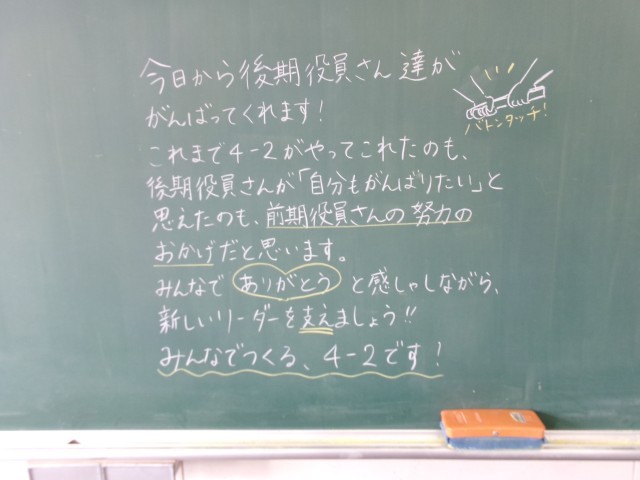 今日から後期役員さん達が
がんばってくれます!
バトンタッチ!
これまで4-2がやってこれたのも、
後期役員さんが「自分もがんばりたい」と
思えたのも、前期役員さんの努力の
おかげだと思います。
みんなで ありがとう と感しゃしながら、
新しいリーダーを支えましょう!!
みんなでつくる、4-2です!